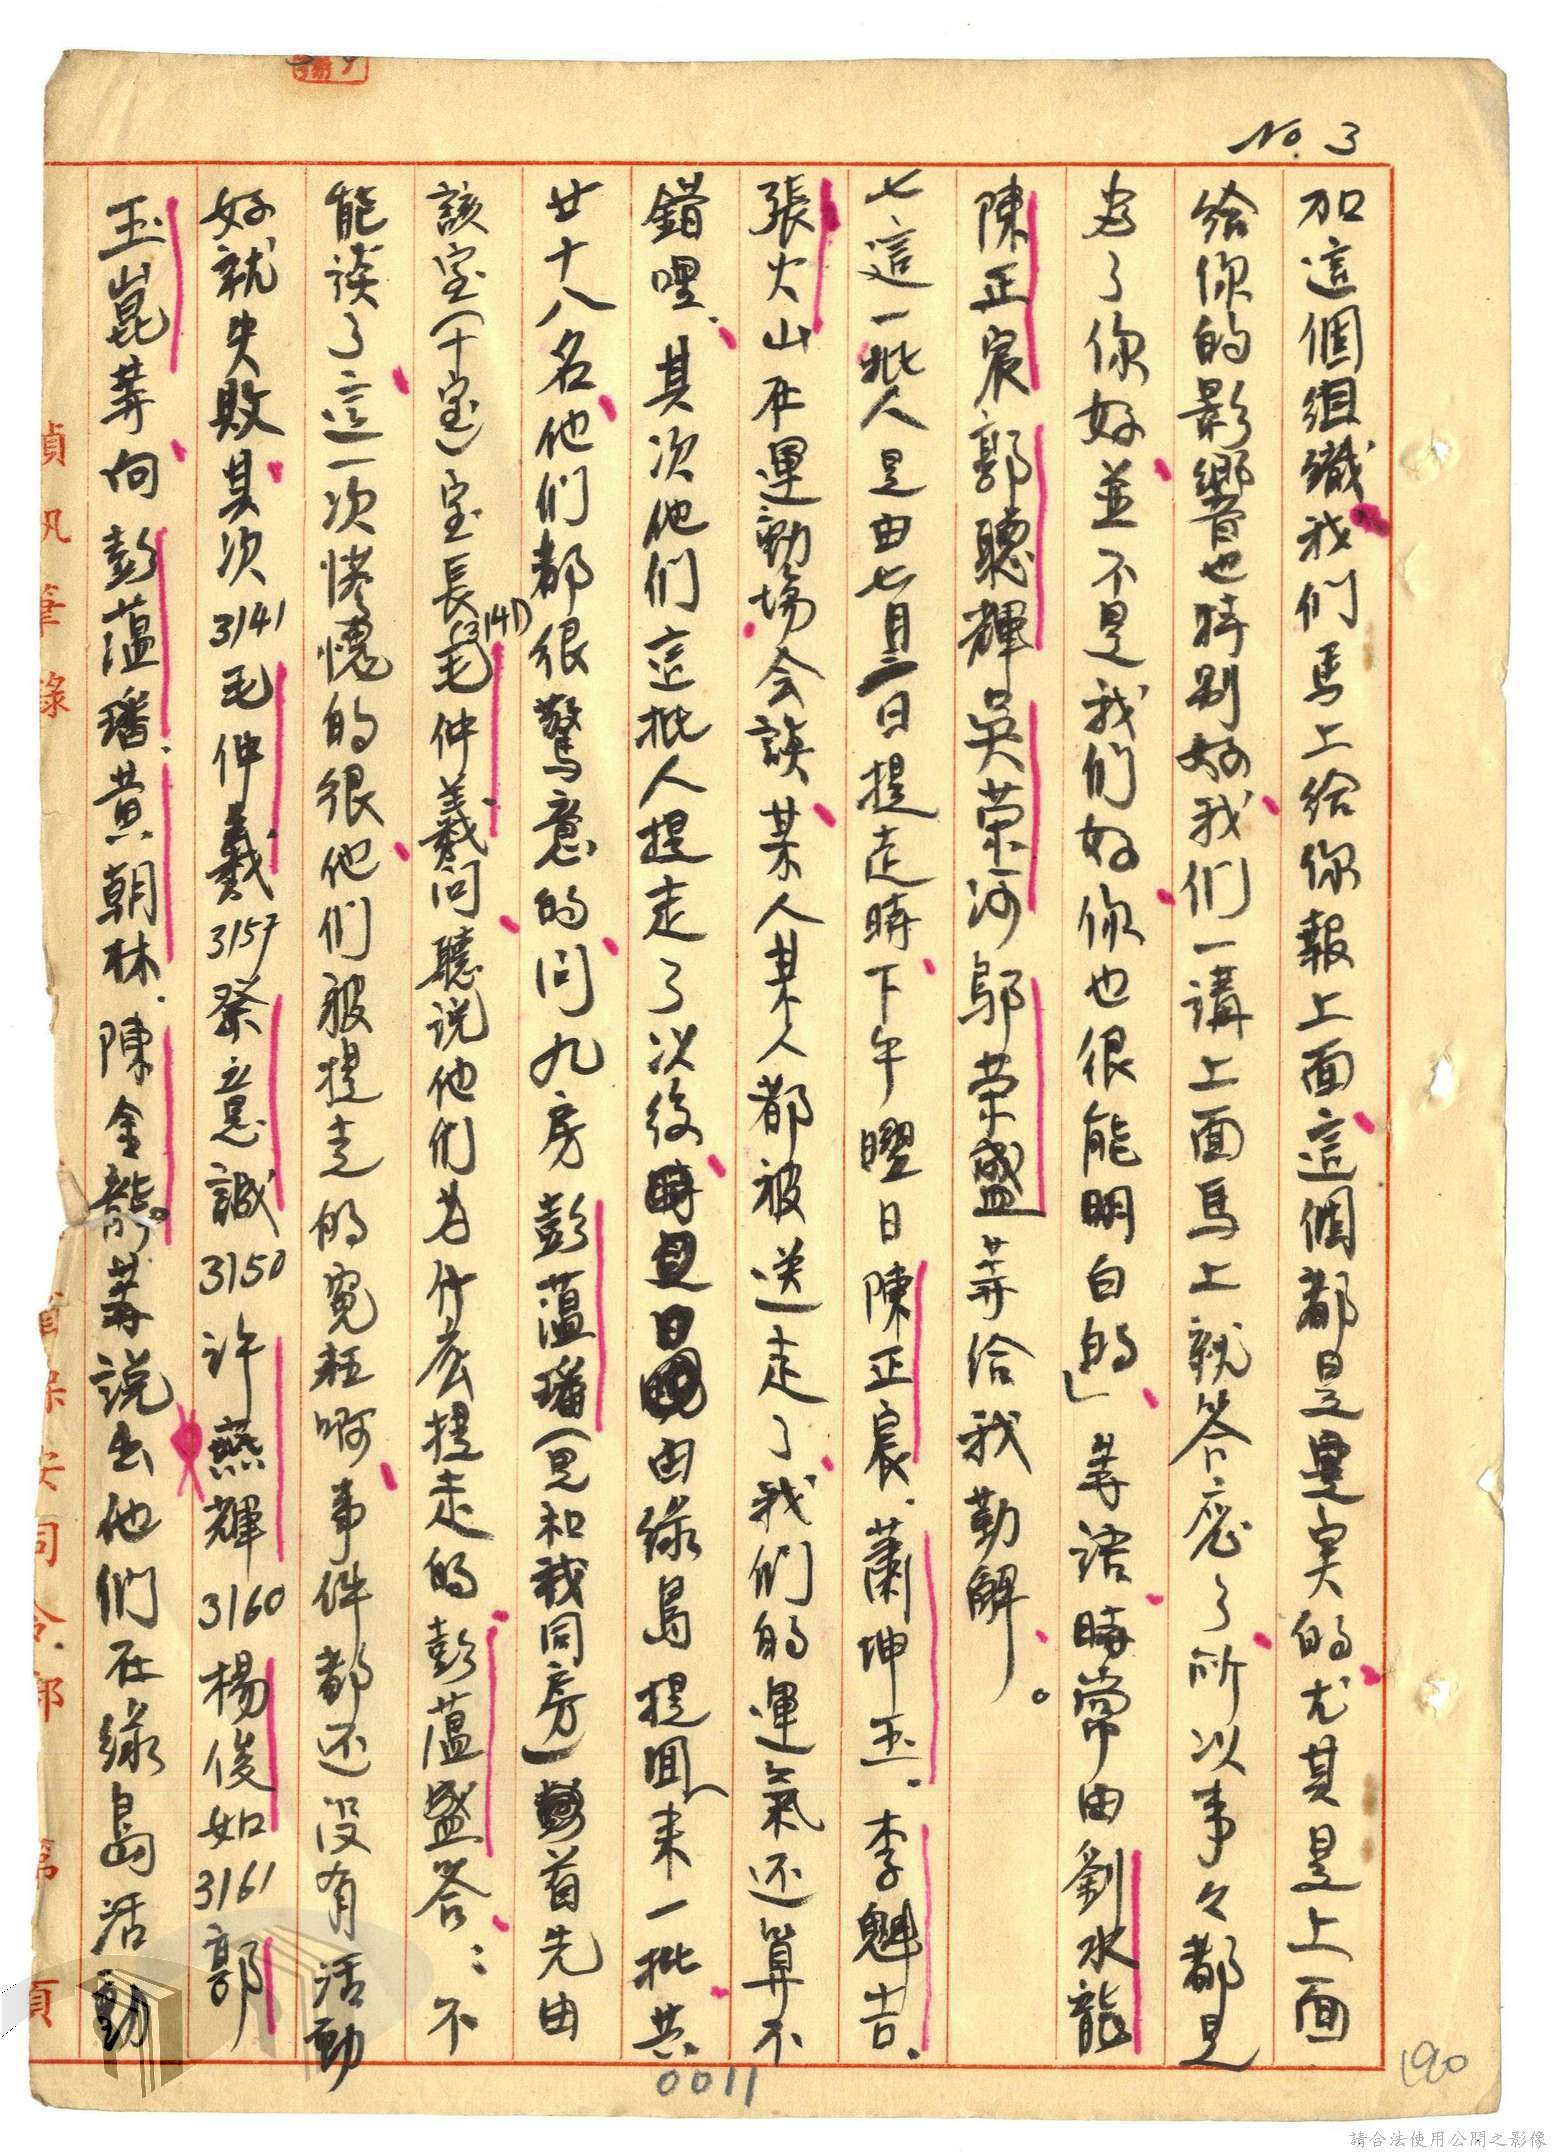 No. 3
加這個組織我们馬上给你報上面這個都是眞実的尤其是上面
给你的影響也特别好我们一講上面馬上就答應了所以事々都是
为了你好並不是我们好你也很能明白的」等语時常由劉水龍
陳正宸郭聰輝吳荣河鄔荣盛等给我勤解。
七這一批人是由七月三日提走時下午曜日陳正宸.蕭坤玉.李魁吉.
張火山在運動場会談某人某人都被送走了我们的運氣还算不
錯哩.其次他们這批人提走了以後由緑島提囬来一批共
廿十八名他们都很驚意的问九房彭蕰璠(見和我同房)首先由
該室(十室)室長(3141)毛仲羲问聽说他们为什麽提走的彭蕰盛答:不
能谈了這一次慘愧的很他们被提走的寃枉啊事件都还没有活動
好就失敗其次3141毛仲羲3157蔡意誠3150许燕輝3160楊俊如3161郭
玉崑等向彭蕰璠.黄朝林.陳金龍。等説出他们在緑島活動
偵訊筆錄
保安司令部
第 頁
0011
190
請合法使用公開之影像